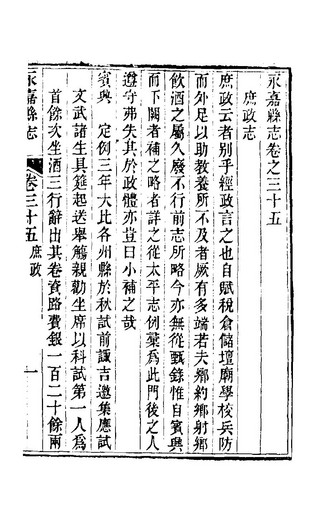 永嘉縣志卷之三十五
庶政志
庶政云者別乎經政言之也自賦稅倉儲壇廟學校兵防
而外足以助教養所不及者厥有多端若夫鄉約鄉射鄉
飲酒之屬久廢不行前志所略今亦無從甄錄惟自賓興
而下闕者補之略者詳之從太平志例彙為此門後之人
遵守弗失其於政體亦豈曰小補之哉
賓興 定例三年大比各州縣於秋試前諏吉邀集應試
文武諸生具筵起送舉觴親勸坐席以科試第一人為
首餘次坐酒三行辭出其卷資路費銀一百二十餘兩
永嘉縣志
卷三十五庶政
一